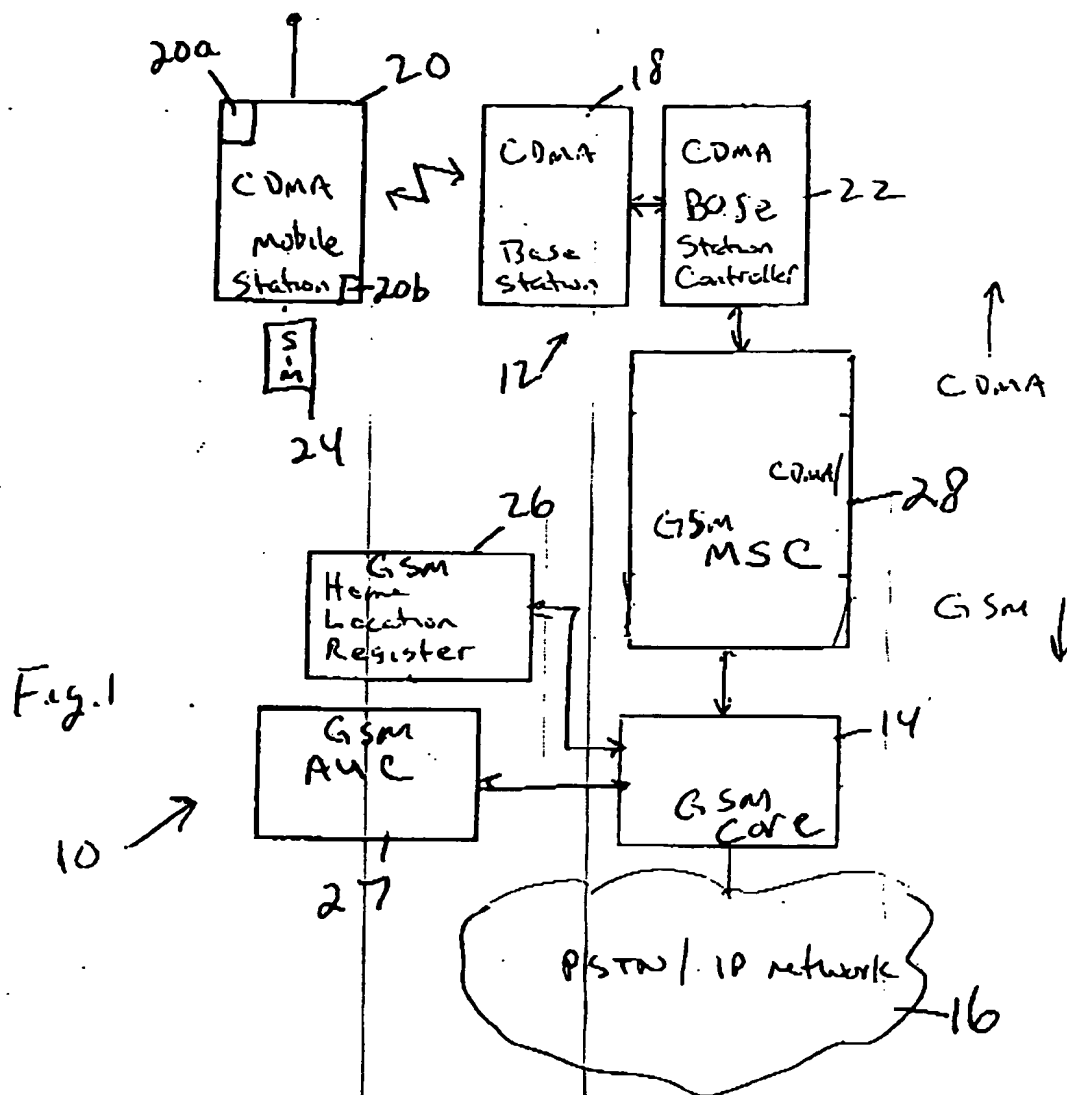 20a
20
18
CDMA
Mobile
Station
20b
CDMA
Base
Station
CDMA
Base
Station
Controller
22
SIM
24
12
CDMA
CDMA/
GSM
MSC
28
GSM
26
GSM
Home
Location
Register
Fig. 1
GSM
AUC
14
GSM
Core
10
27
PSTN / IP network
16